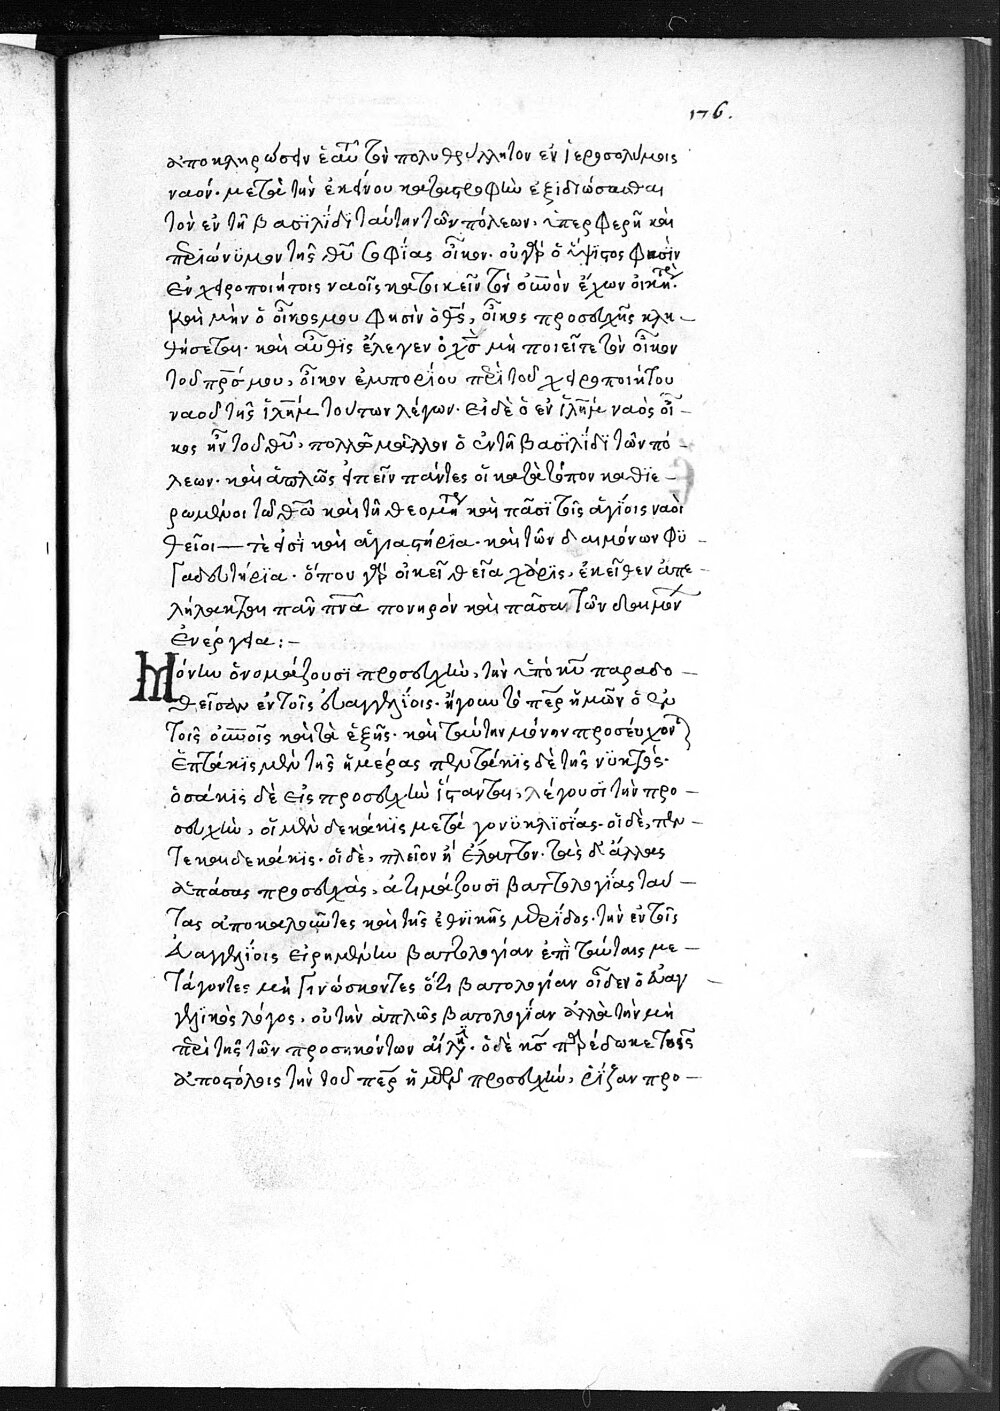 176.
ἀποκληρώσειν ἑαυτ τὸν πολυθρύλλητον ἐν ἱεροσολύμοις
ναόν. μετὰ τὴν ἐκείνου καταστροφὴν ἐξιδιώσασθαι
τὸν ἐν τῆ βασϊλίδϊ ταύτην τῶν πόλεων, ὑπερφερῆ καὶ
περιώνυμον τῆς θῦ σοφίας οἶκον. οὐ γὰρ ὁ ὕψϊστος φησὶν
ἐν χειροποιήτοις ναοῖς κατοικεῖν τὸν οὐνὸν ἔχων οἰκητρ.
καὶ μὴν ὁ οἶκος μου φησὶν ὁ θς, οἶκος προσευχῆς κλη-
θήσεται. καὶ αὖθϊς ἔλεγεν ὁ χς μὴ ποιεῖτε τὸν οἶκον
τοῦ πρς μου, οἶκον ἐμπορίου περὶ τοῦ χειροποιήτου
ναοῦ τῆς ἱλημ τοῦτον λέγων. εἰ δὲ ὁ ἐν ἱλημ ναὸς οἶ-
κος ἦν τοῦ θῦ, πολλῶ μᾶλλον ὁ ἐν τῆ βασϊλίδϊ τῶν πό-
λεων. καὶ ἁπλῶς εἰπεῖν πάντες οἱ κατὰ τόπον καθϊε-
ρωμένοι τῶ θῶ καὶ τῆ θεομητρ καὶ πᾶσϊ τοῖς ἁγΐοις ναοὶ
θεῖοι — τέ εἰσϊ καὶ ἁγιαστήρϊα. καὶ τῶν δαιμόνων φϋ-
γαδευτήρϊα. ὅπου γὰρ οἰκεῖ θεία χάρϊς, ἐκεῖθεν ἀπε-
λήλαται πᾶν πνᾶ πονηρὸν καὶ πᾶσα τῶν δαιμόν
ἐνέργεια:-
Μόνην ὀνομάζουσϊ προσευχὴν, τὴν ὑπὸ κῦ παραδο-
θεῖσαν ἐν τοῖς εὐαγγελΐοις. ἤγουν τὸ περ ἡμῶν ὁ ἐν
τοῖς οὐνοῖς καὶ τὰ ἑξῆς. καὶ ταύτην μόνην προσεύχοντ
ἑπτάκϊς μὲν τῆς ἡμέρας πεντάκϊς δὲ τῆς νϋκτός.
ὁσάκϊς δὲ εἰς προσευχὴν ἵστανται, λέγουσϊ τὴν προ-
σευχὴν, οἱ μὲν δεκάκϊς μετὰ γονϋκλϊσίας. οἱ δὲ, πεν-
τεκαιδεκάκϊς. οἱ δὲ, πλεῖον ἢ ἔλαττον. τὰς δ' ἄλλας
ἁπάσας προσευχὰς, ἀτιμάζουσϊ βαττολογΐας ταύ-
τας ἀποκαλοῦντες καὶ τῆς ἐθνϊκῆς μερΐδος. τὴν ἐν τοῖς
εὐαγγελΐοις εἰρημένην βαττολογίαν ἐπὶ ταύταις με-
τάγοντες μὴ γινώσκοντες ὅτι βατολογίαν οἶδεν ὁ εὐαγ
γελϊκὸς λόγος, οὐ τὴν ἁπλῶς βατολογΐαν ἀλλὰ τὴν μὴ
περὶ τῆς τῶν προσηκόντων αἴτησ. ὁ δὲ κς παρέδωκε τοῖς
ἀποστόλοις τὴν τοῦ περ ἡμῶν προσευχὴν, ῥίζαν προ-